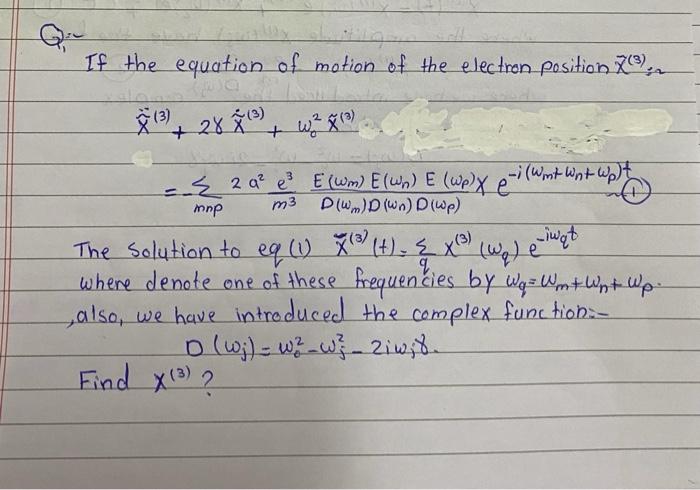 Q1:-
If the equation of motion of the electron position x̃⁽³⁾:-
ẍ̃⁽³⁾ + 2γ ẋ̃⁽³⁾ + ω₀² x̃⁽³⁾
= -Σ_mnp 2a² e³/m³ E(ωm) E(ωn) E(ωp)/D(ωm)D(ωn)D(ωp) × e^-i(ωm+ωn+ωp)t (1)
The solution to eq (1) x̃⁽³⁾(t) = Σ_q x⁽³⁾(ωq) e^-iωqt
where denote one of these frequencies by ωq = ωm + ωn + ωp.
, also, we have introduced the complex function:-
D(ωj) = ω₀² - ωj² - 2iωjγ.
Find x⁽³⁾?